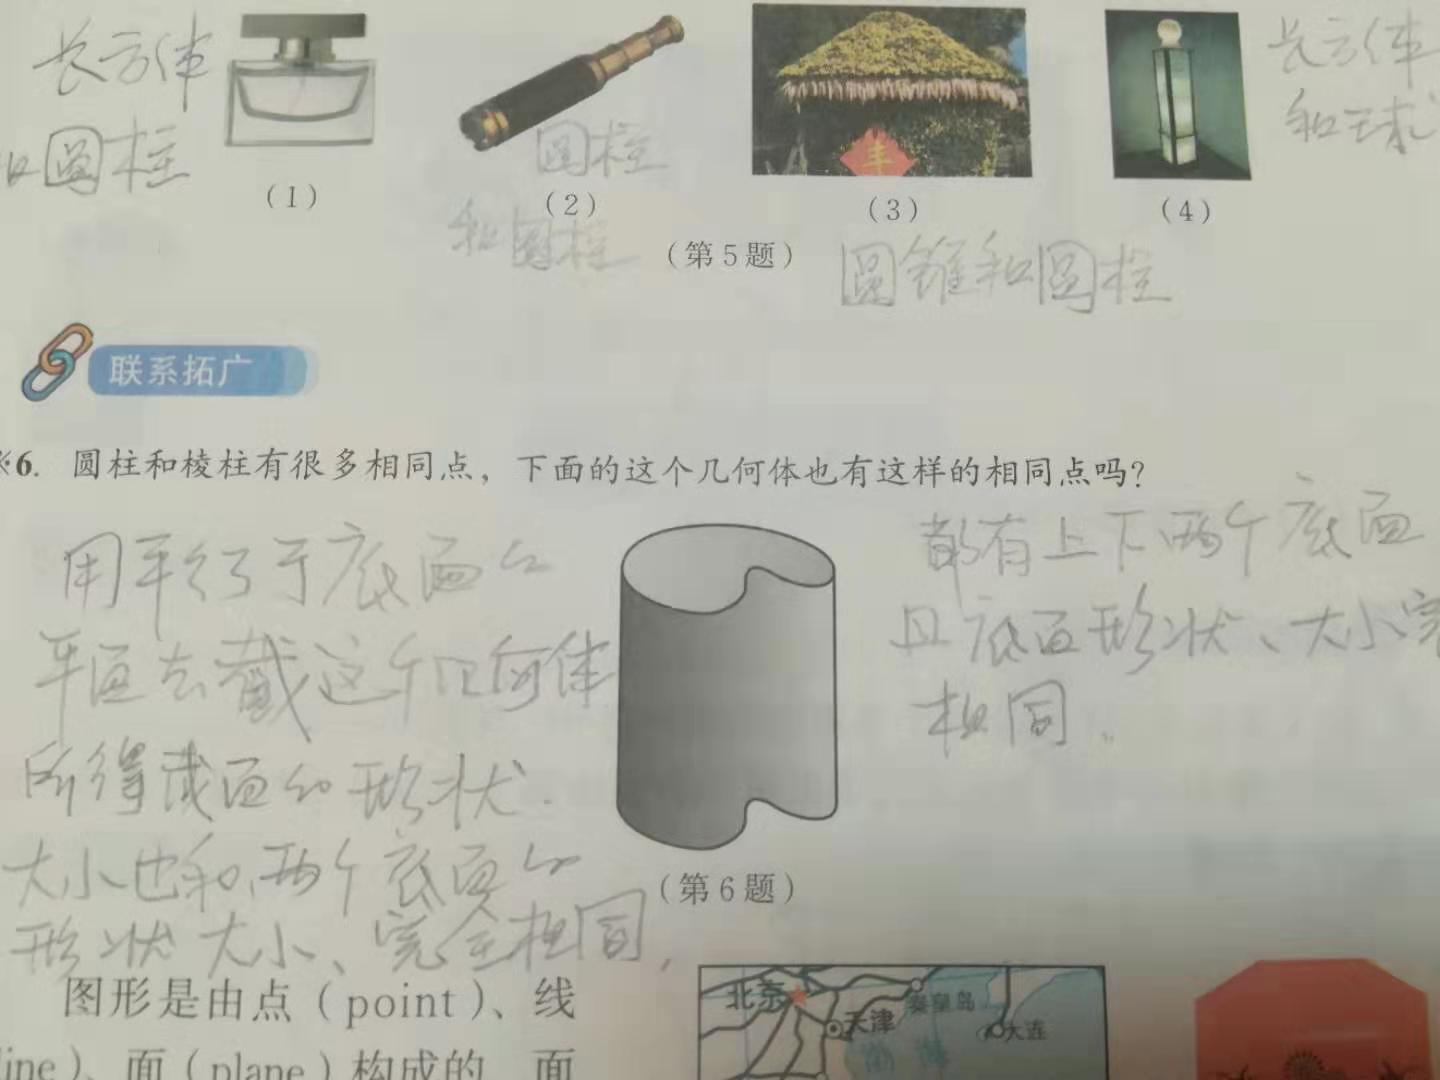 长方体
和圆柱
圆柱
和圆柱
丰
长方体
和球
(1)
(2)
(3)
(4)
(第5题)
圆锥和圆柱
联系拓广
※6. 圆柱和棱柱有很多相同点，下面的这个几何体也有这样的相同点吗？
用平行于底面的
平面去截这个几何体
所得截面的形状.
大小也和两个底面的
形状大小、完全相同,
都有上下两个底面
且底面形状、大小完
相同.
(第6题)
图形是由点（point）、线
line）、面（plane）构成的 面
北京
天津
秦皇岛
大连
渤海